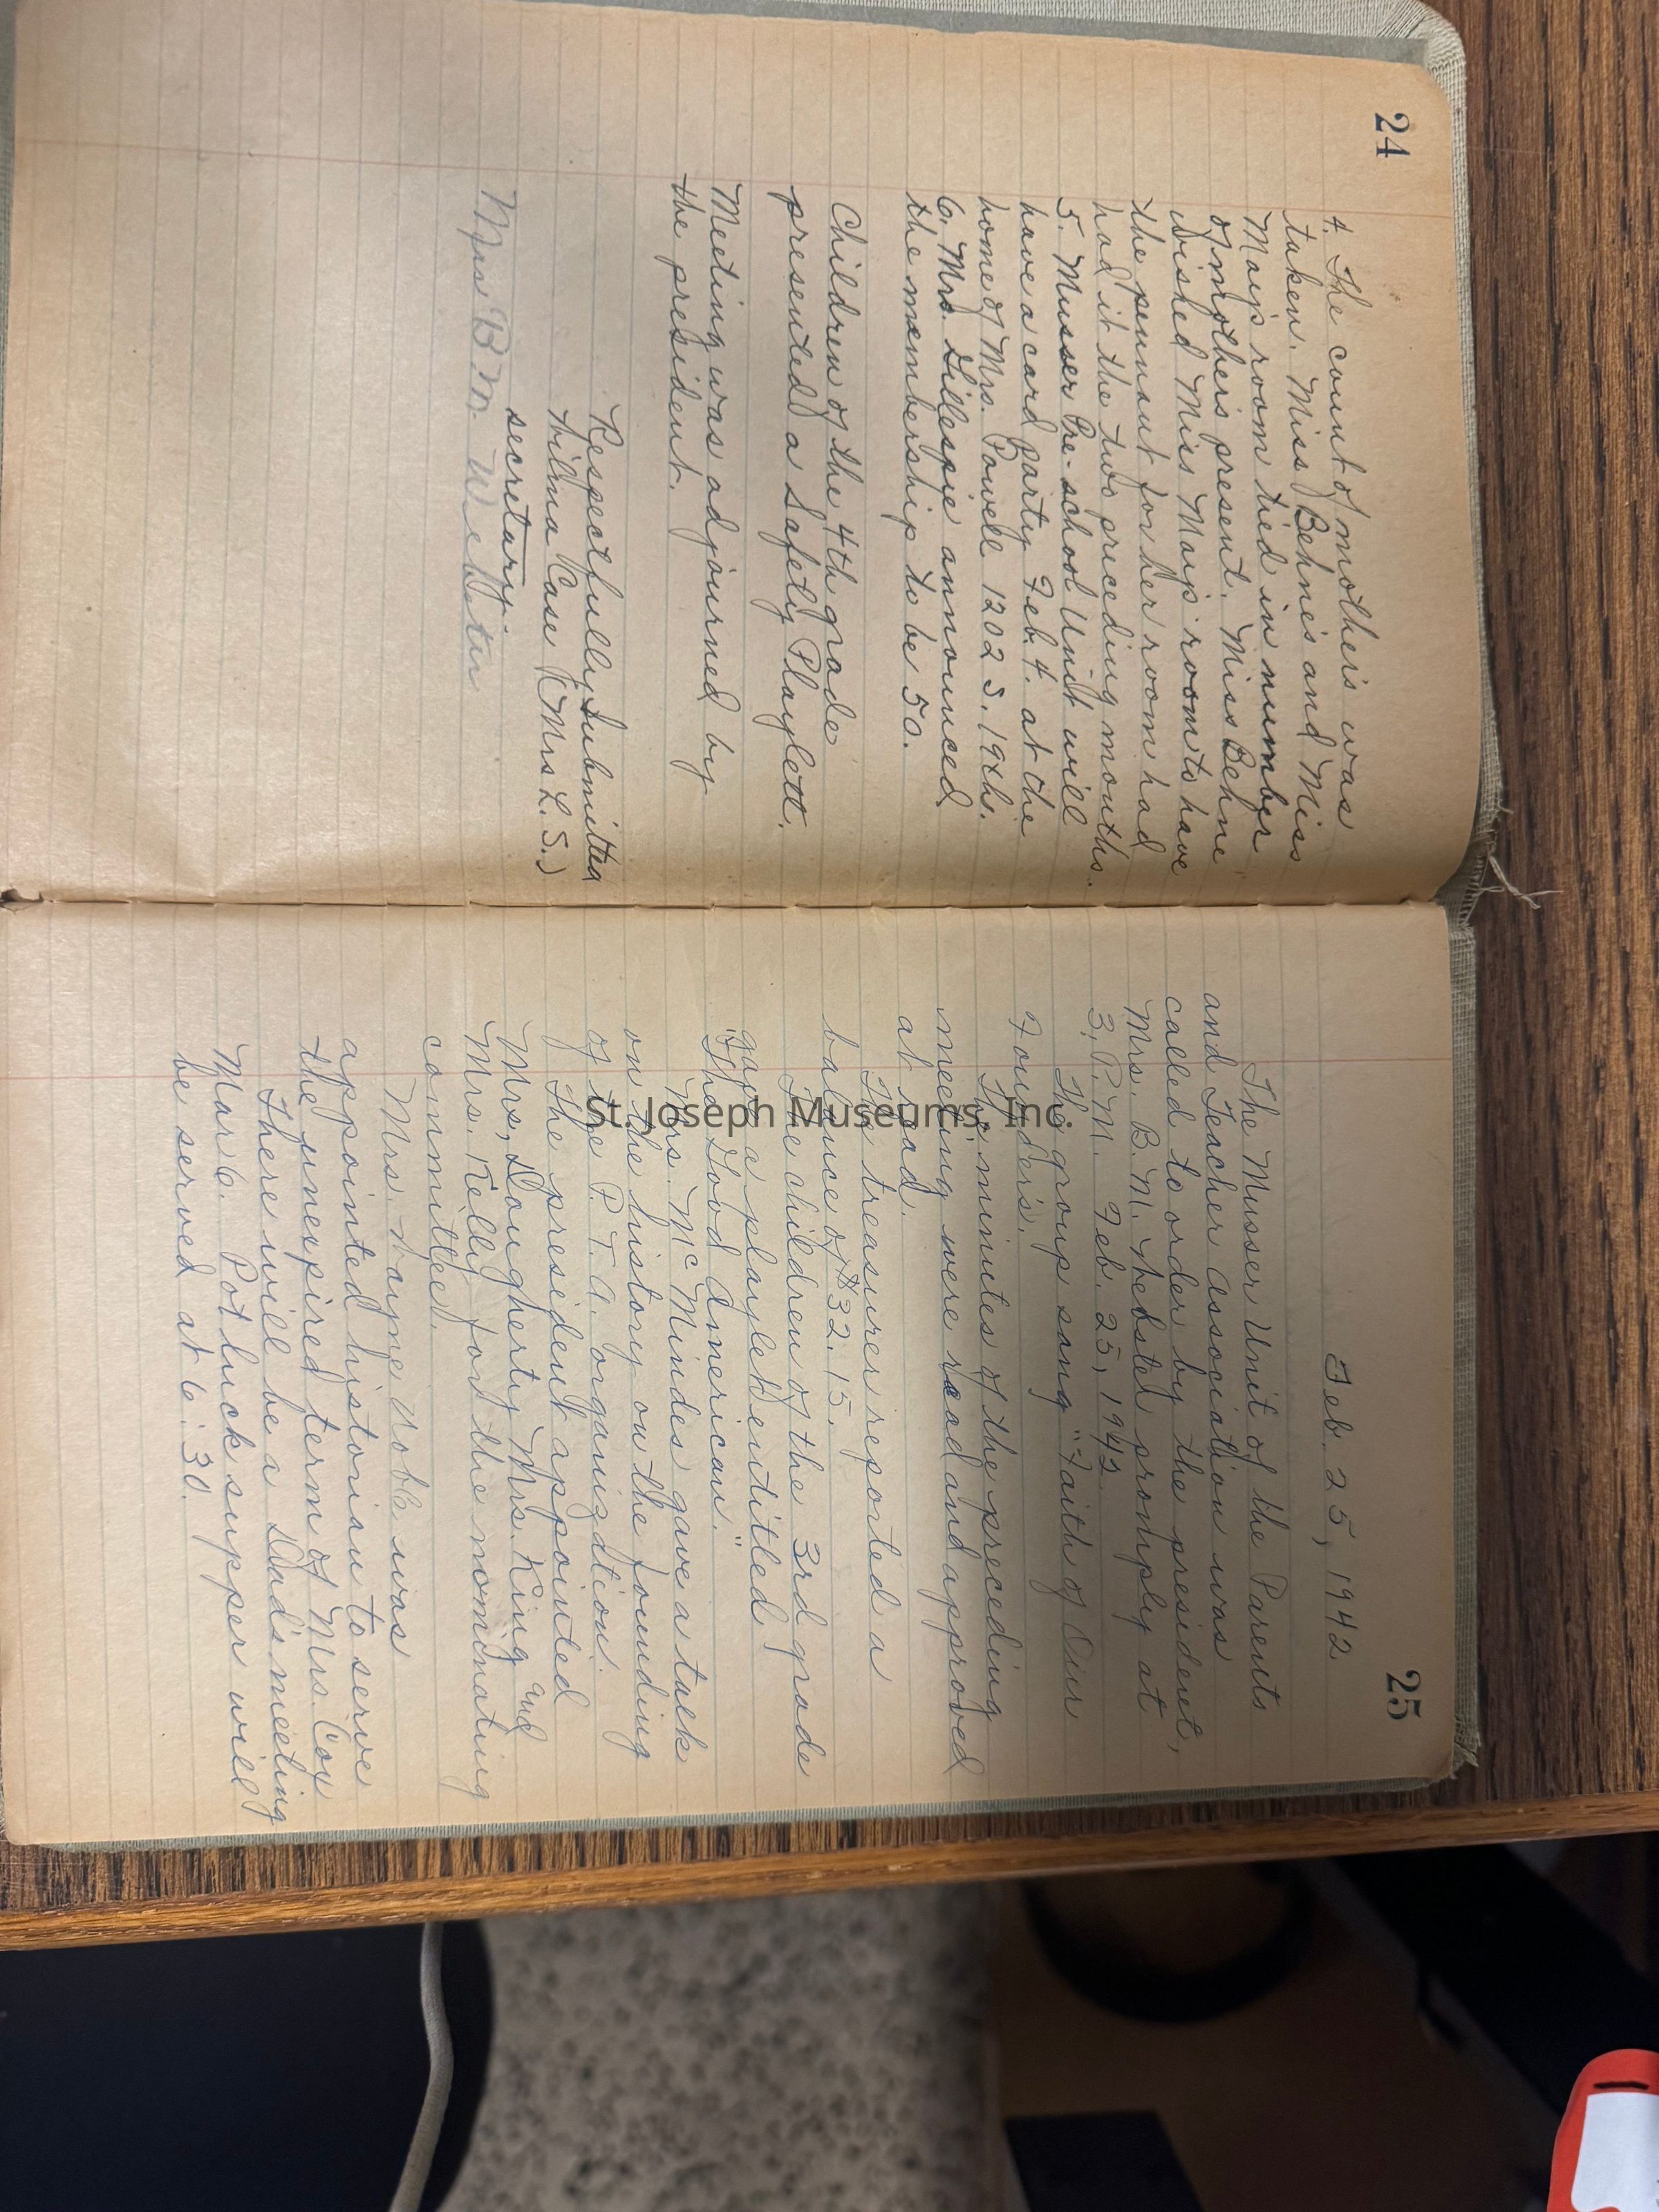 24
4. The count of mothers was
taken. Miss Behne's and Miss
May's room tied in number
of mothers present. Miss Behne
wished Miss May's room to have
the pennant for her room had
had it the two preceding months.
5. Musser Pre-school Unit will
have a card party Feb. 4. at the
home of Mrs. Powell 1202 S. 19th.
6. Mrs. Gillespie announced
the membership to be 50.
Children of the 4th grade
presented a Safety Playlett.
Meeting was adjourned by
the president.
Respectfully Submitted
Wilma Case (Mrs L. S.)
secretary.
Mrs B. M. Webster
25
Feb. 25, 1942
The Musser Unit of the Parents
and Teacher Association was
called to order by the president,
Mrs. B. M. Webster promply at
3, P. M. Feb. 25, 1942.
The group sang "Faith of Our
Founders.
The minutes of the preceding
meeting were read and approved
at read.
The treasurer reported a
balance of $32.15.
The children of the 3rd grade
gave a playlet entitled
"The Good American."
Mrs. McMindes gave a talk
on the history on the founding
of the P. T. A. organization.
The president appointed
Mrs. Dougherty Mrs. King and
Mrs. Kelly for the nominating
committee.
Mrs. Wayne Noble was
appointed historian to serve
the unexpired term of Mrs. Cox
There will be a Dad's meeting
Mar 6. Pot luck supper will
be served at 6:30.
St. Joseph Museums, Inc.